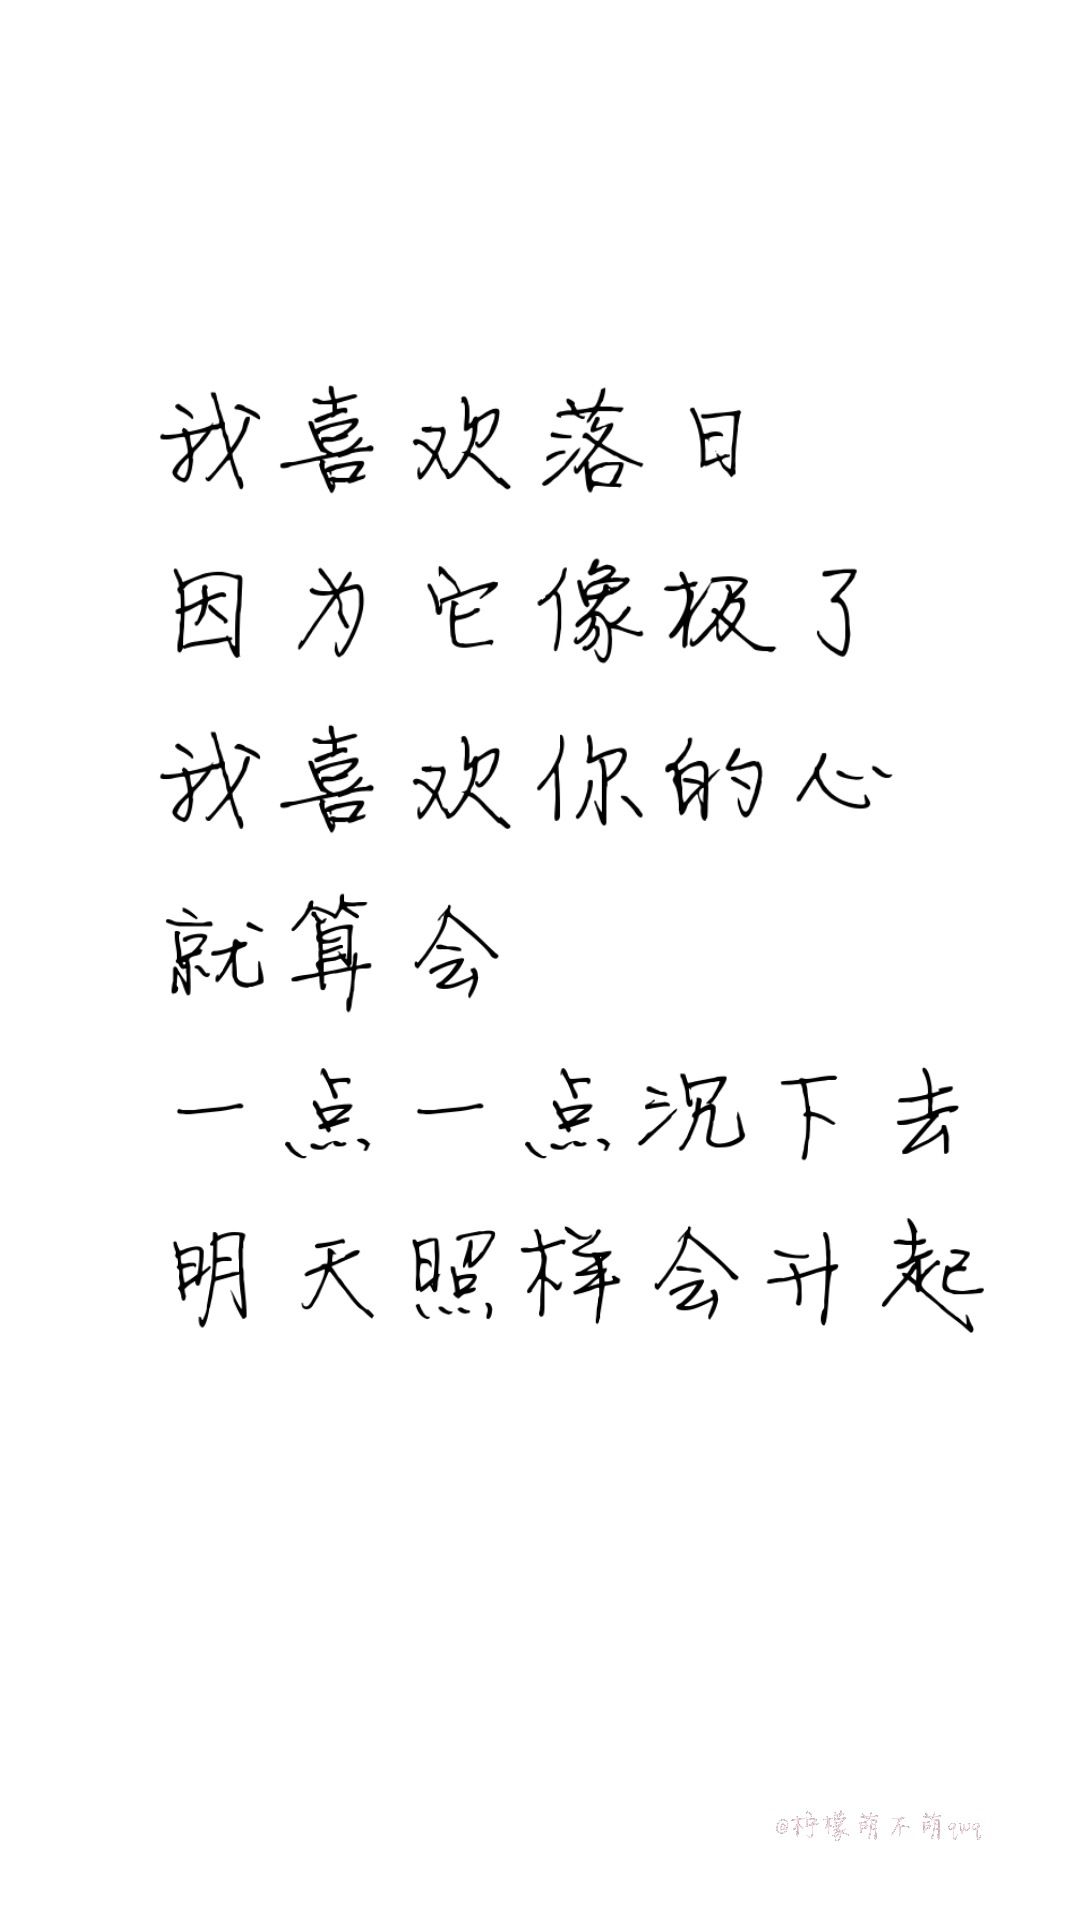 我喜欢落日
因为它像极了
我喜欢你的心
就算会
一点一点沉下去
明天照样会升起
@柠檬萌不萌qwq